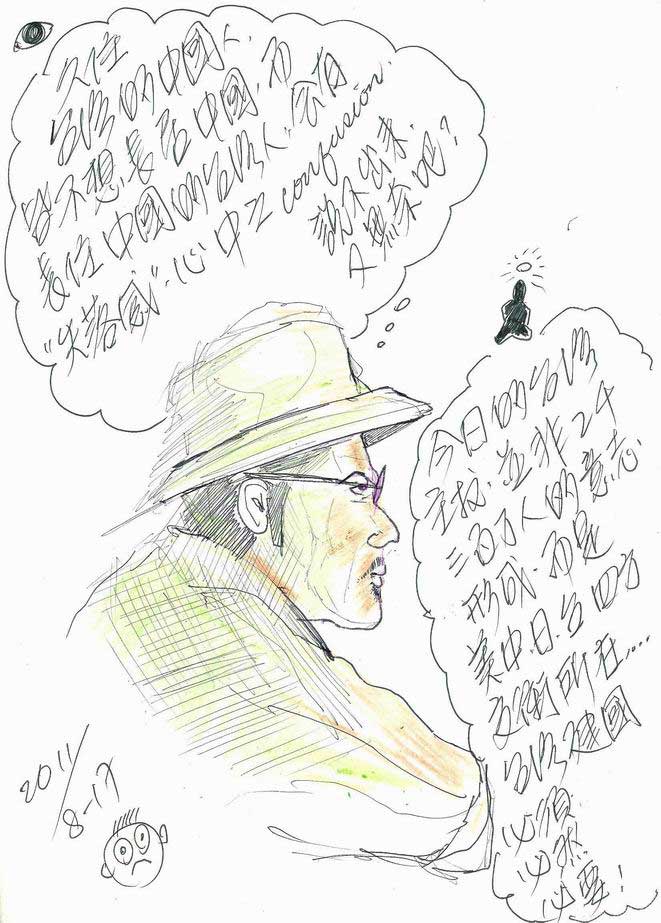 久住
台灣的中國人、而
皆不想長居中國、
長住中國的台灣人.
"失落感".心中之 confusion.
說不出來.
A 懸案吧?
今日的台灣
主权.並非2千
三百万人的意志
形成.而是
美中.日.台四方
所在....
台灣建國
必須
必然
必要!
2011/8-17